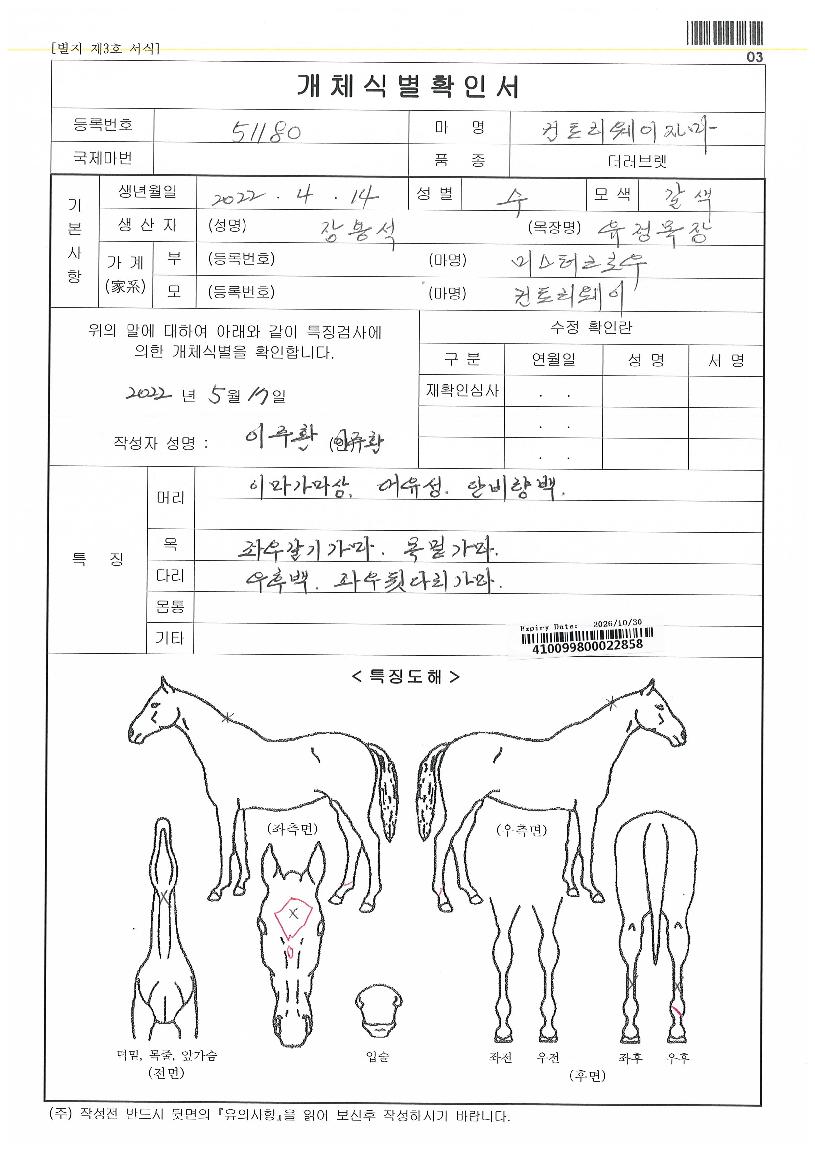 [별지 제3호 서식]
03
개체식별확인서
등록번호 51180 마 명 컨트리웨이지마
국제마번 품 종 더러브렛
기본사항
생년월일 2022 . 4 . 14 성별 수 모색 갈색
생산자 (성명) 장봉석 (목장명) 유정목장
가계 (家系) 부 (등록번호) (마명) 미스터크로우
모 (등록번호) (마명) 컨트리웨이
위의 말에 대하여 아래와 같이 특징검사에
의한 개체식별을 확인합니다.
2022 년 5월 17일
작성자 성명 : 이주환 (인)
수정 확인란
구분 연월일 성명 서명
재확인심사 . .
. .
. .
특 징
머리 이마가마상, 어유성. 단비량백.
목 좌우갈기가마. 목밑가마.
다리 우후백. 좌우뒷다리가마.
몸통
기타
Expiry Date: 2026/10/30
410099800022858
< 특징도해 >
(좌측면) (우측면)
턱밑, 목줄, 앞가슴
(전면)
입술
좌전 우전 좌후 우후
(후면)
(주) 작성전 반드시 뒷면의 『유의사항』을 읽어 보신후 작성하시기 바랍니다.